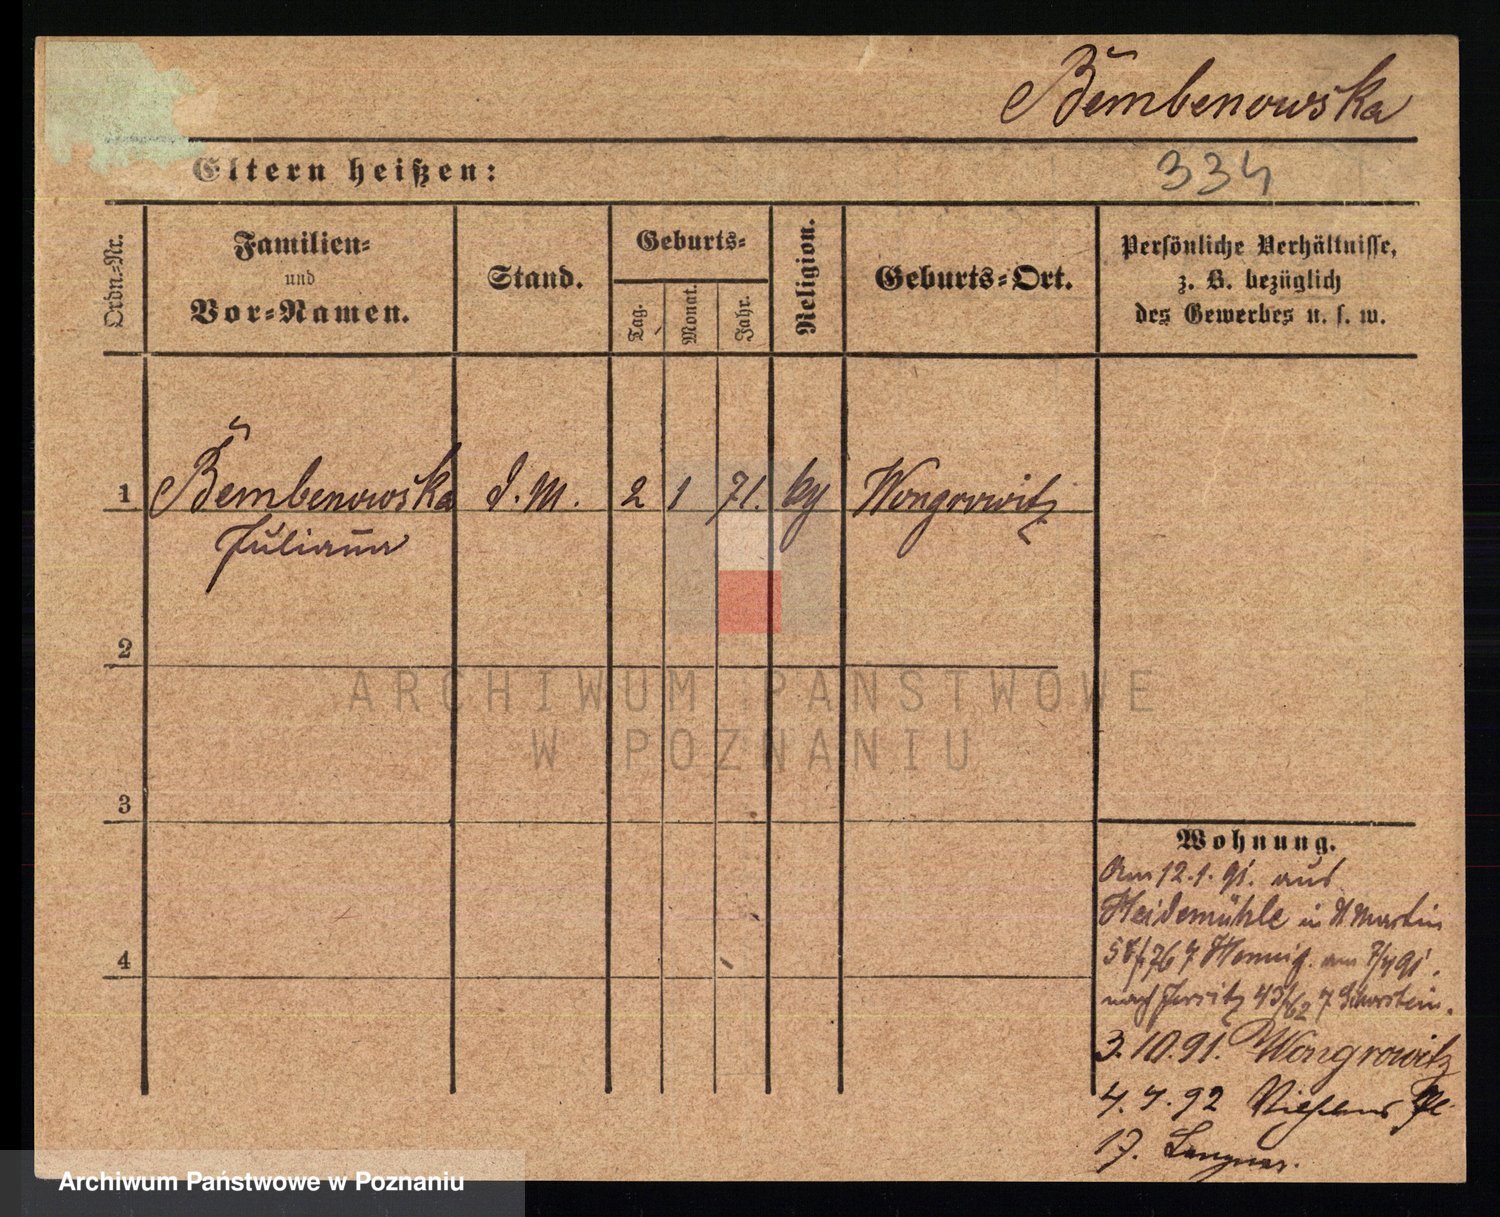 Bembenowska
Eltern heißen:
334
Ordn.-Nr.
Familien-
und
Vor-Namen.
Stand.
Geburts-
Tag.
Monat.
Jahr.
Religion.
Geburts-Ort.
Persönliche Verhältnisse,
z. B. bezüglich
des Gewerbes u. s. w.
1 Bembenowska d. M. 2 1 71. Wongrowitz
Juliana
2
ARCHIWUM PAŃSTWOWE
W POZNANIU
3
Wohnung.
Am 12.1.91. aus
Heidemühle in St Martin
4
nach Jersitz 43/62
3.10.91. Wongrowitz
4.4.92
17.
Archiwum Państwowe w Poznaniu